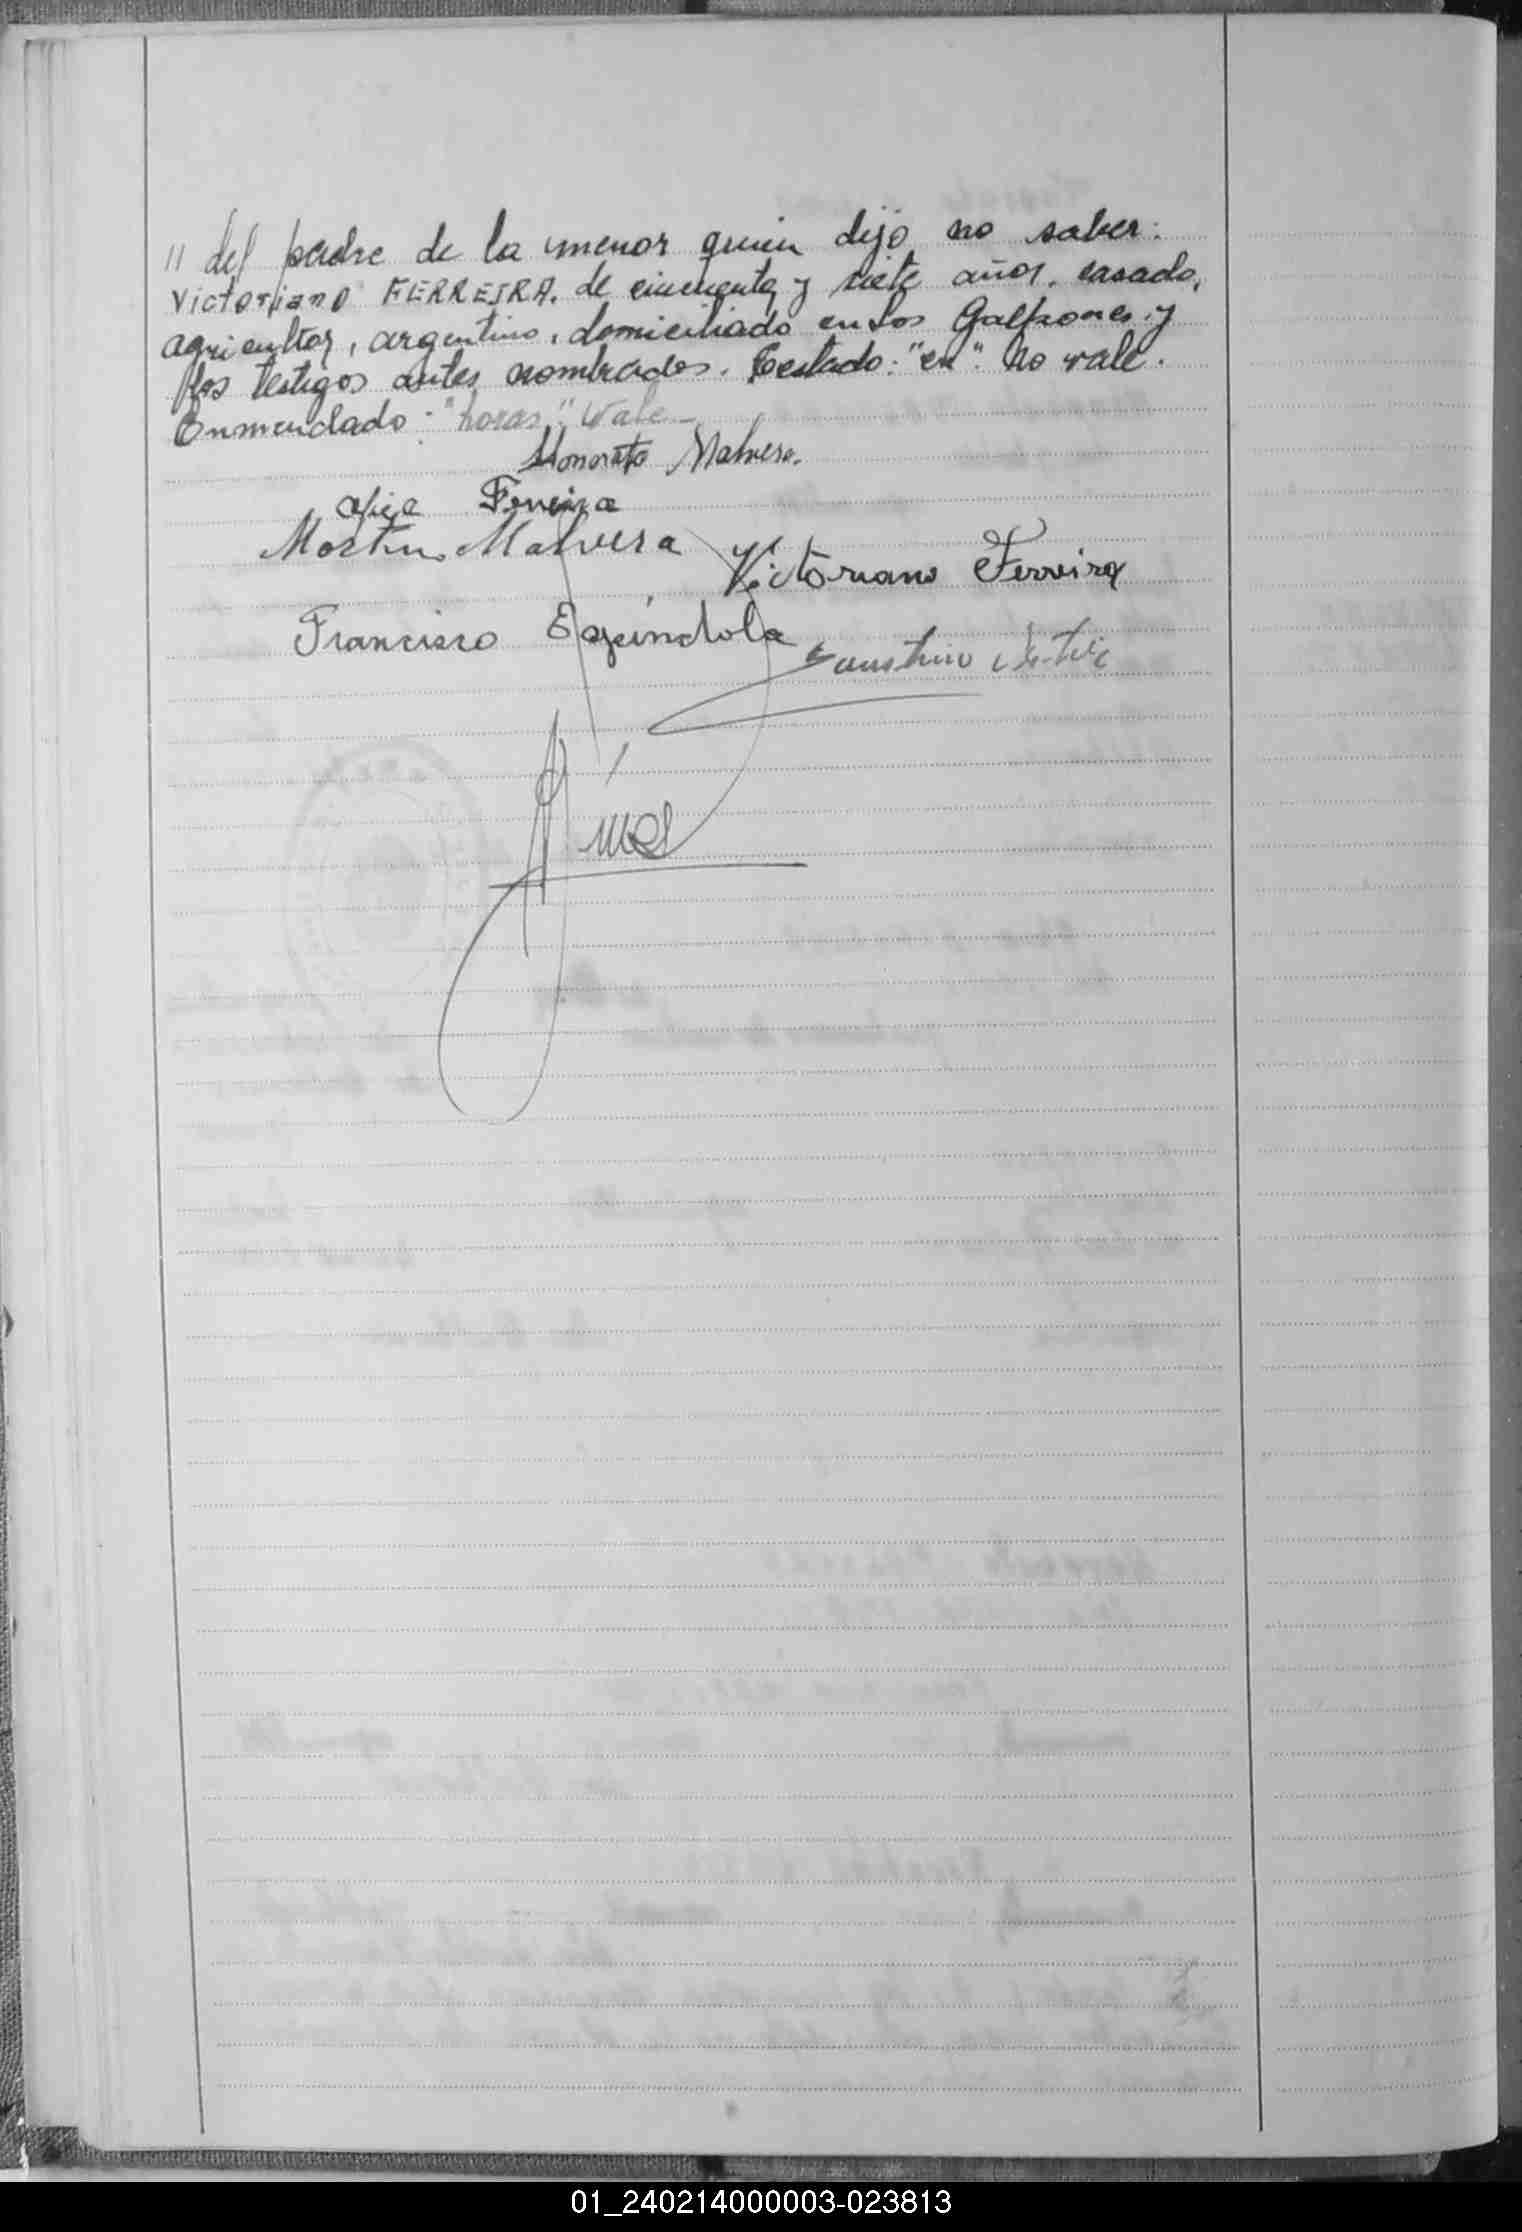 // del padre de la menor quien dijo no saber:
Victoriano FERREIRA, de cincuenta y siete años, casado,
agricultor, argentino, domiciliado en Los Galpones y
los testigos antes nombrados. Testado: "en": No vale.
Enmendado: "horas": Vale—
Honorato Malvera.
Ferreira
Martin Malvera
Victoriano Ferreira
Francisco Espíndola
Faustino
01_240214000003-023813